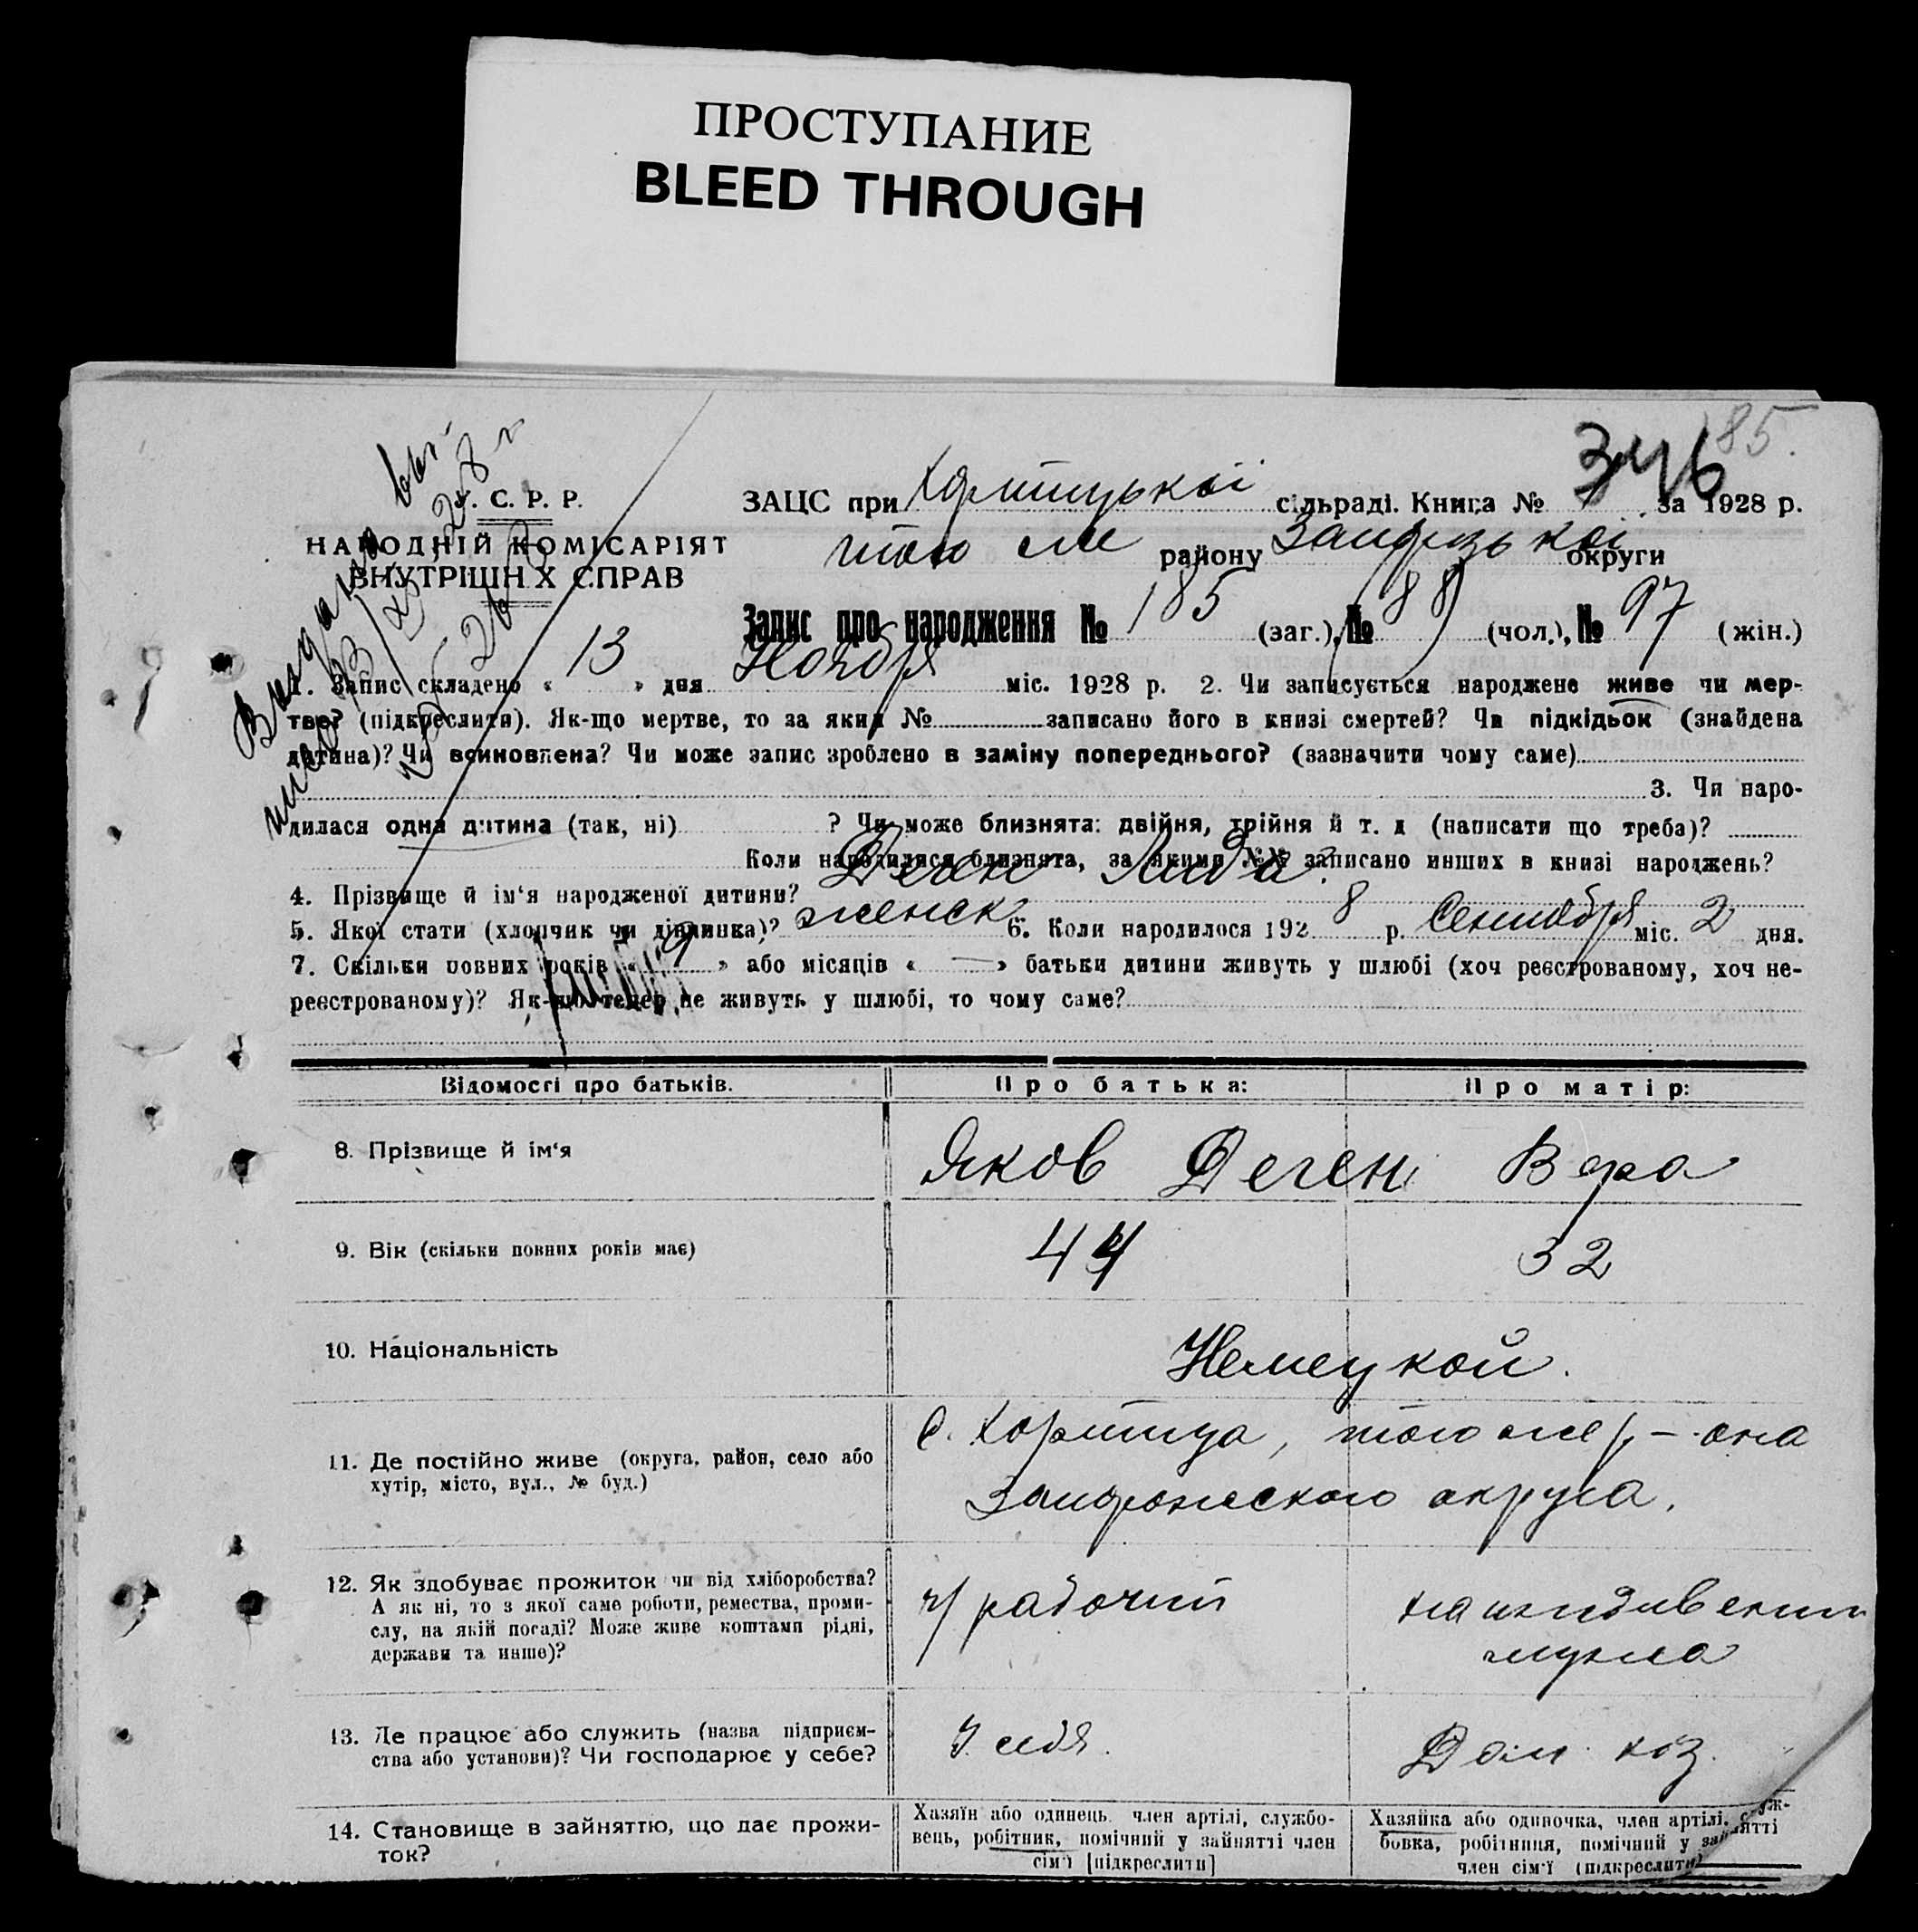 ПРОСТУПАНИЕ
BLEED THROUGH
185.
346
У. С. Р. Р.
НАРОДНІЙ КОМІСАРІЯТ
ВНУТРІШНІХ СПРАВ
ЗАЦС при Хортицькій сільраді. Книга № за 1928 р.
того же району Запорізькоі округи
Запис про народження № 185 (заг.), № 88 (чол.), № 97 (жін.)
Выдано
1. Запис складено « 13 » дня Ноября міс. 1928 р. 2. Чи записується народжене живе чи мер-
тве? (підкреслити). Як-що мертве, то за яким № записано його в книзі смертей? Чи підкідьок (знайдена
дитина)? Чи всиновлена? Чи може запис зроблено в заміну попереднього? (зазначити чому саме)
3. Чи наро-
дилася одна дитина (так, ні) ? Чи може близнята: двійня, трійня й т. д (написати що треба)?
Коли народилися близнята, за якими №№ записано инших в книзі народжень?
4. Прізвище й ім'я народженої дитини? Деген Лида.
5. Якої стати (хлопчик чи дівчинка)? женск 6. Коли народилося 192 8 р. Сентября міс. 2 дня.
7. Скільки повних років « 9 » або місяців « — » батьки дитини живуть у шлюбі (хоч реєстрованому, хоч не-
реєстрованому)? Як-що тепер не живуть у шлюбі, то чому саме?
Відомості про батьків. Про батька: Про матір:
8. Прізвище й ім'я Яков Деген Вера
9. Вік (скільки повних років має) 44 32
10. Національність Немецкой.
11. Де постійно живе (округа, район, село або
хутір, місто, вул., № буд.)
с. Хортица, того же р-она
Запорожского округа.
12. Як здобуває прожиток чи від хліборобства?
А як ні, то з якої саме роботи, ремества, проми-
слу, на якій посаді? Може живе коштами рідні,
держави та инше)?
ч/рабочий
на иждивении
мужа
13. Де працює або служить (назва підприєм-
ства або установи)? Чи господарює у себе?
У себя.
Дом. хоз.
14. Становище в зайняттю, що дає прожи-
ток?
Хазяїн або одинець член артілі, службо-
вець, робітник, помічний у зайнятті член
сім'ї [підкреслити]
Хазяйка або одиночка, член артілі, служ-
бовка, робітниця, помічний у зайнятті
член сім'ї (підкреслити)